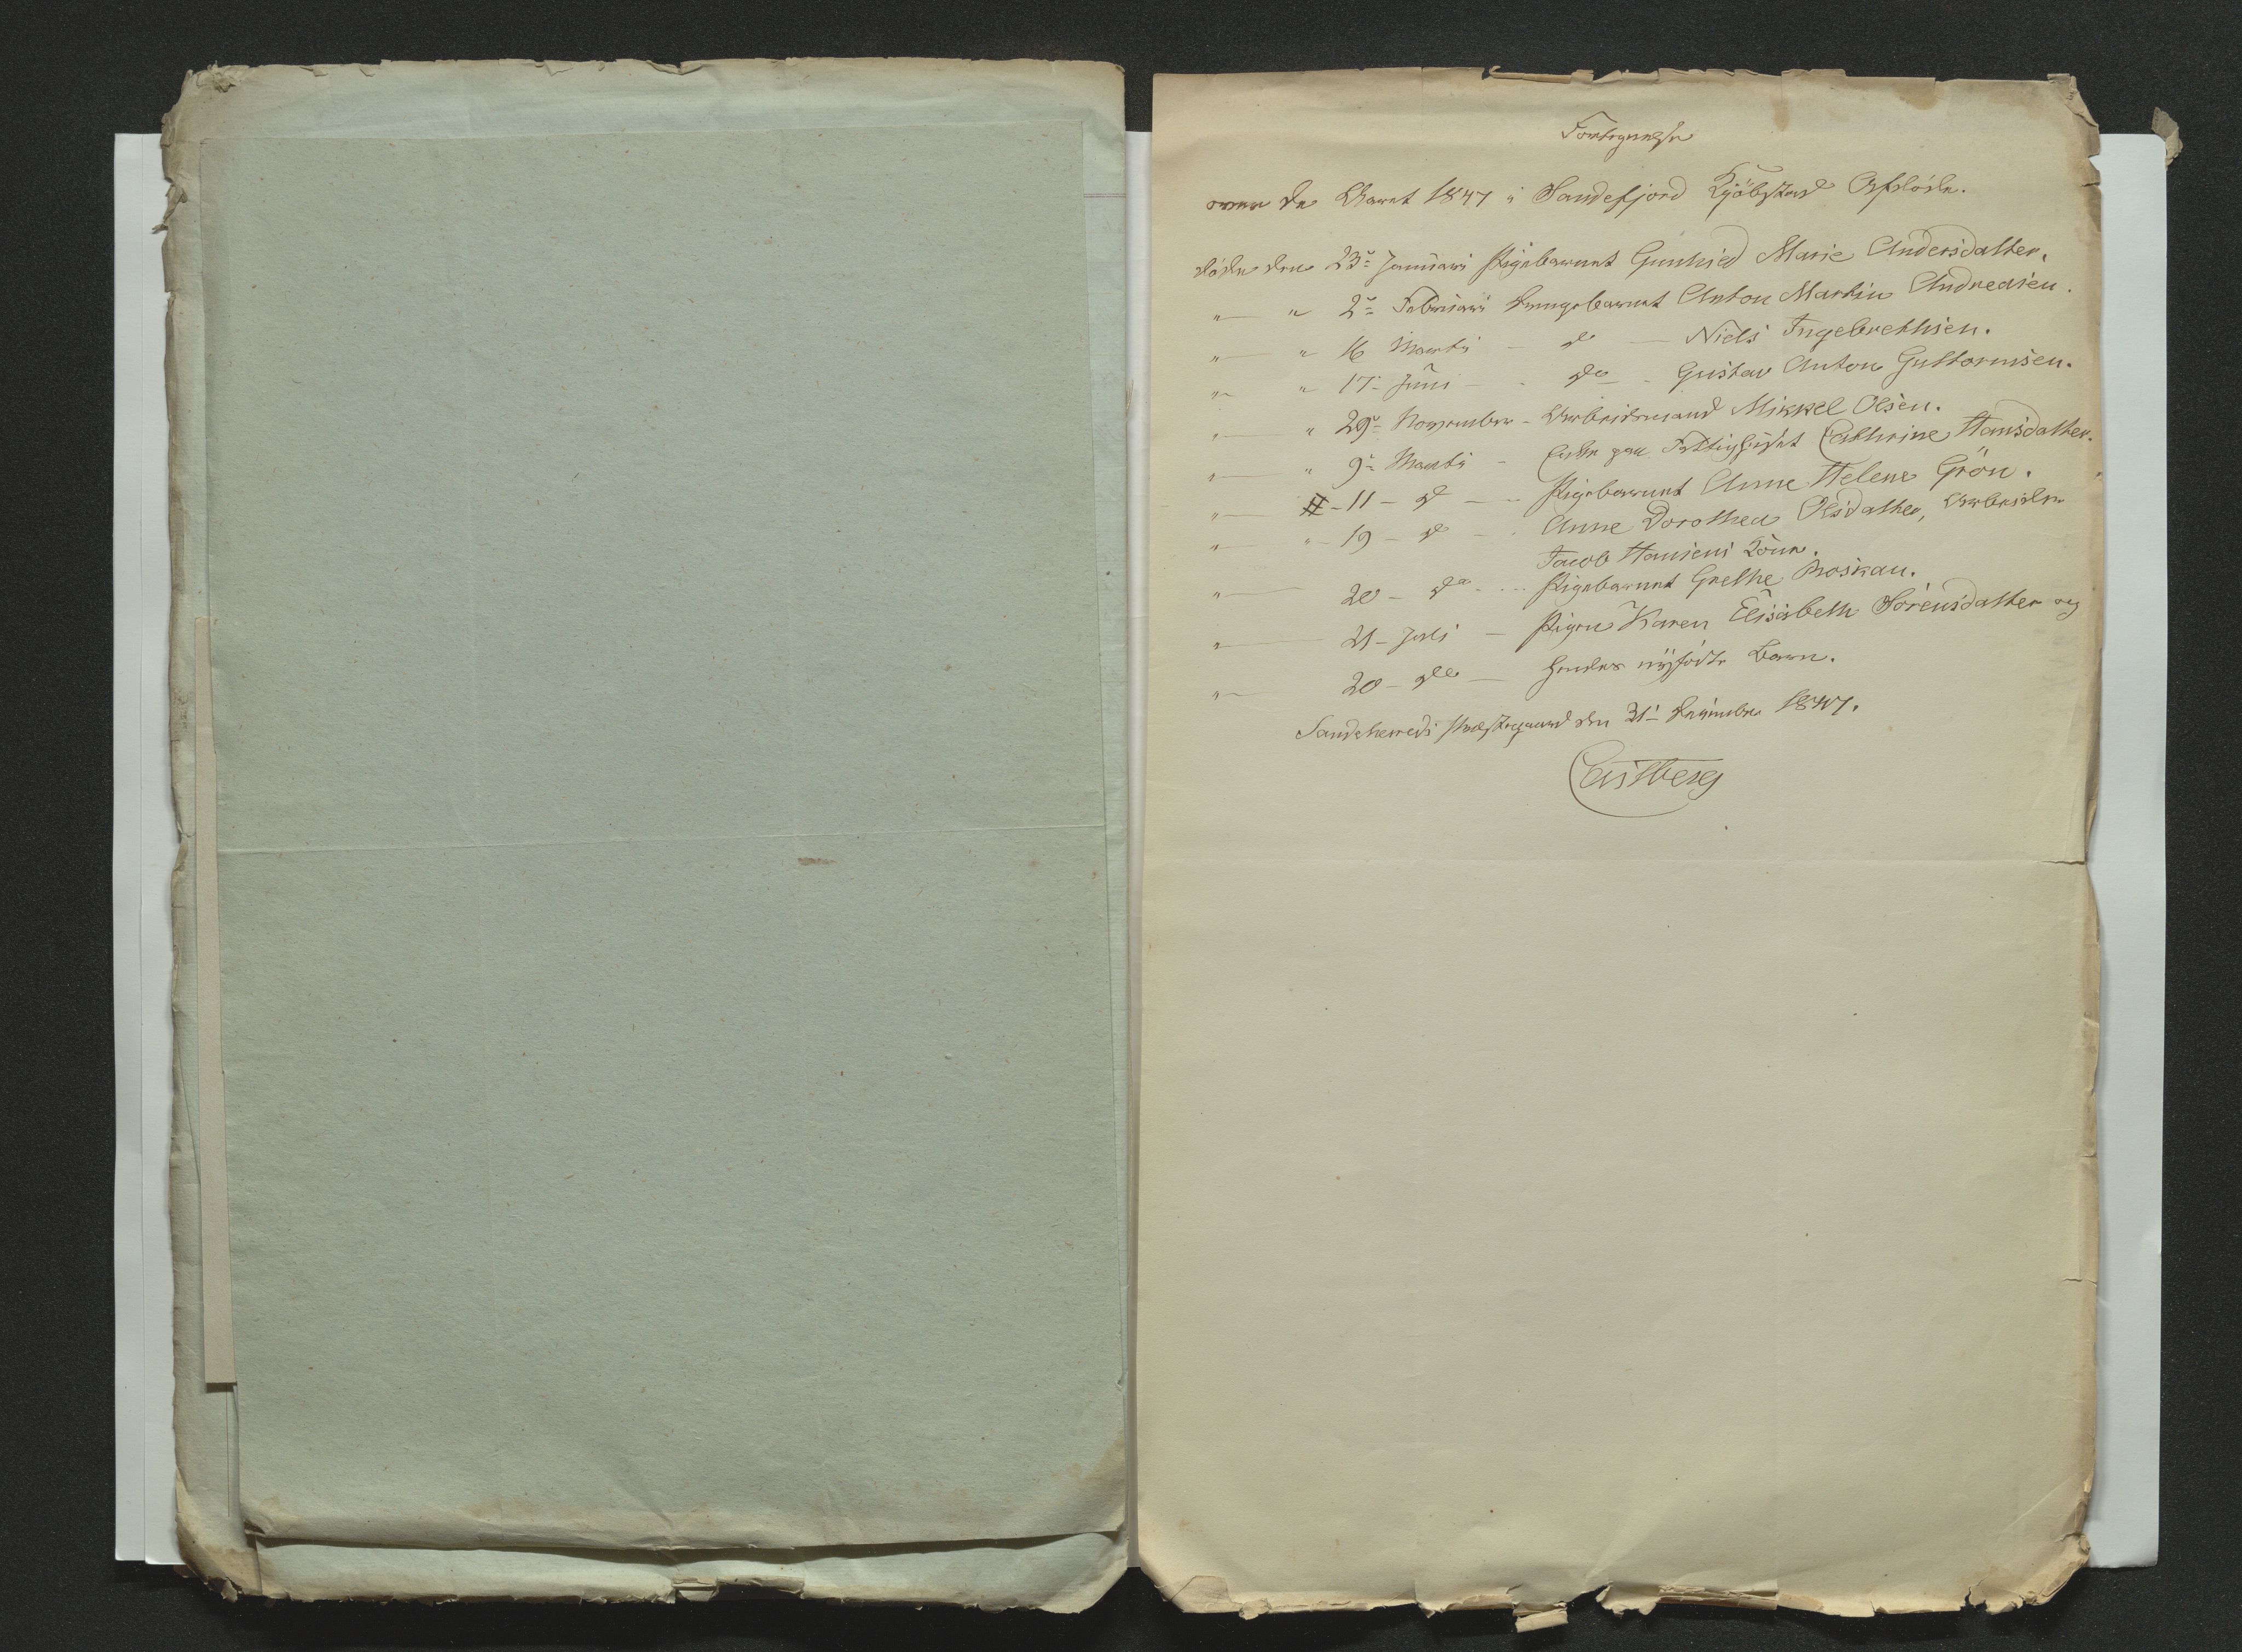 Fortegnelse
over de Aaret 1847 i Sandefjord Kjöbstad Afdöde.
döde den 23de Januari Pigebarnet Gunhild Marie Andersdatter.
" " 2de Februari Drengebarnet Anton Martin Andreasen.
" " 16 Marti — do — Niels Ingebrethsen.
" " 17 - Juni - do - Gustav Anton Guttormsen.
" " 29de November - Arbeidsmand Mikkel Olsen.
" " 9de Marti - Enke paa Fattighuset Cathrine Hansdatter.
" - 11 - do - Pigebarnet Anne Helene Grön.
" " - 19 - do - Anne Dorothea Olsdatter, Arbeider
Jacob Hansens Kone.
" 20 - do - Pigebarnet Grethe
" 21 - Juli - Pigen Karen Elisabeth Sörensdatter og
" 20 - do - hendes nyfödte Barn.
Sandeherreds Præstegaard den 31te December 1847.
Castberg